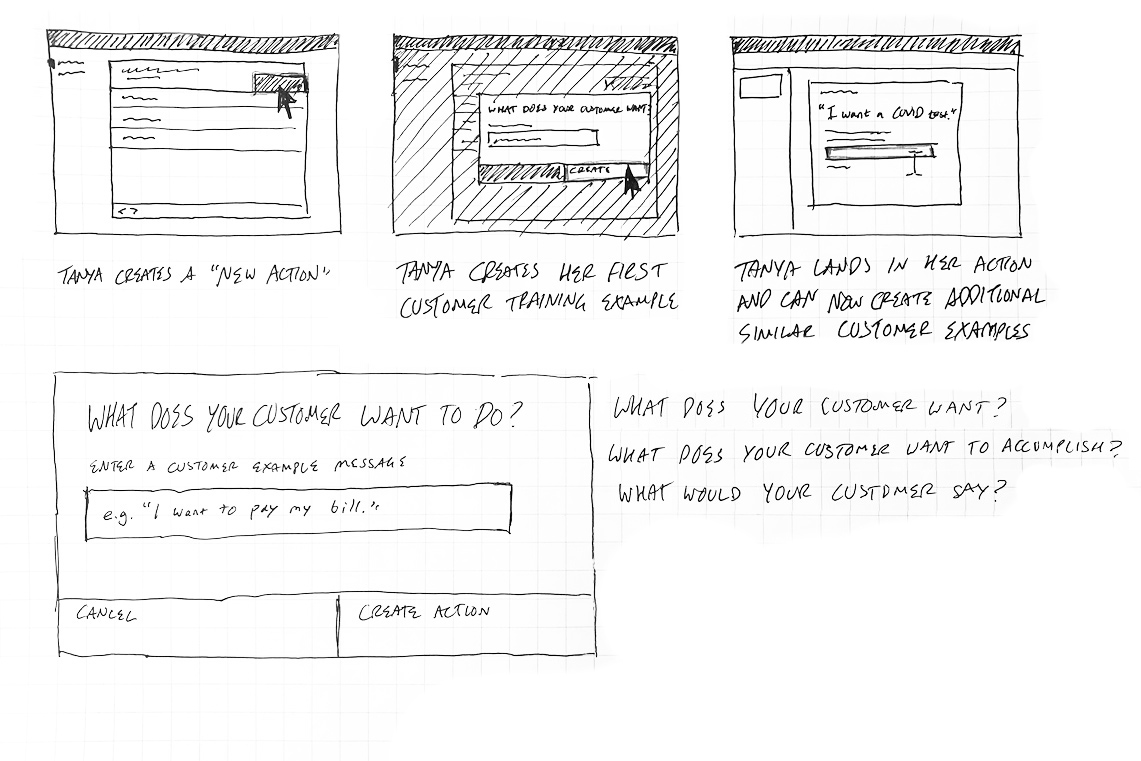 WHAT DOES YOUR CUSTOMER WANT?
CREATE
"I want a COVID test."
TANYA CREATES A "NEW ACTION"
TANYA CREATES HER FIRST
CUSTOMER TRAINING EXAMPLE
TANYA LANDS IN HER ACTION
AND CAN NOW CREATE ADDITIONAL
SIMILAR CUSTOMER EXAMPLES
WHAT DOES YOUR CUSTOMER WANT TO DO?
ENTER A CUSTOMER EXAMPLE MESSAGE
e.g. "I want to pay my bill."
CANCEL
CREATE ACTION
WHAT DOES YOUR CUSTOMER WANT?
WHAT DOES YOUR CUSTOMER WANT TO ACCOMPLISH?
WHAT WOULD YOUR CUSTOMER SAY?